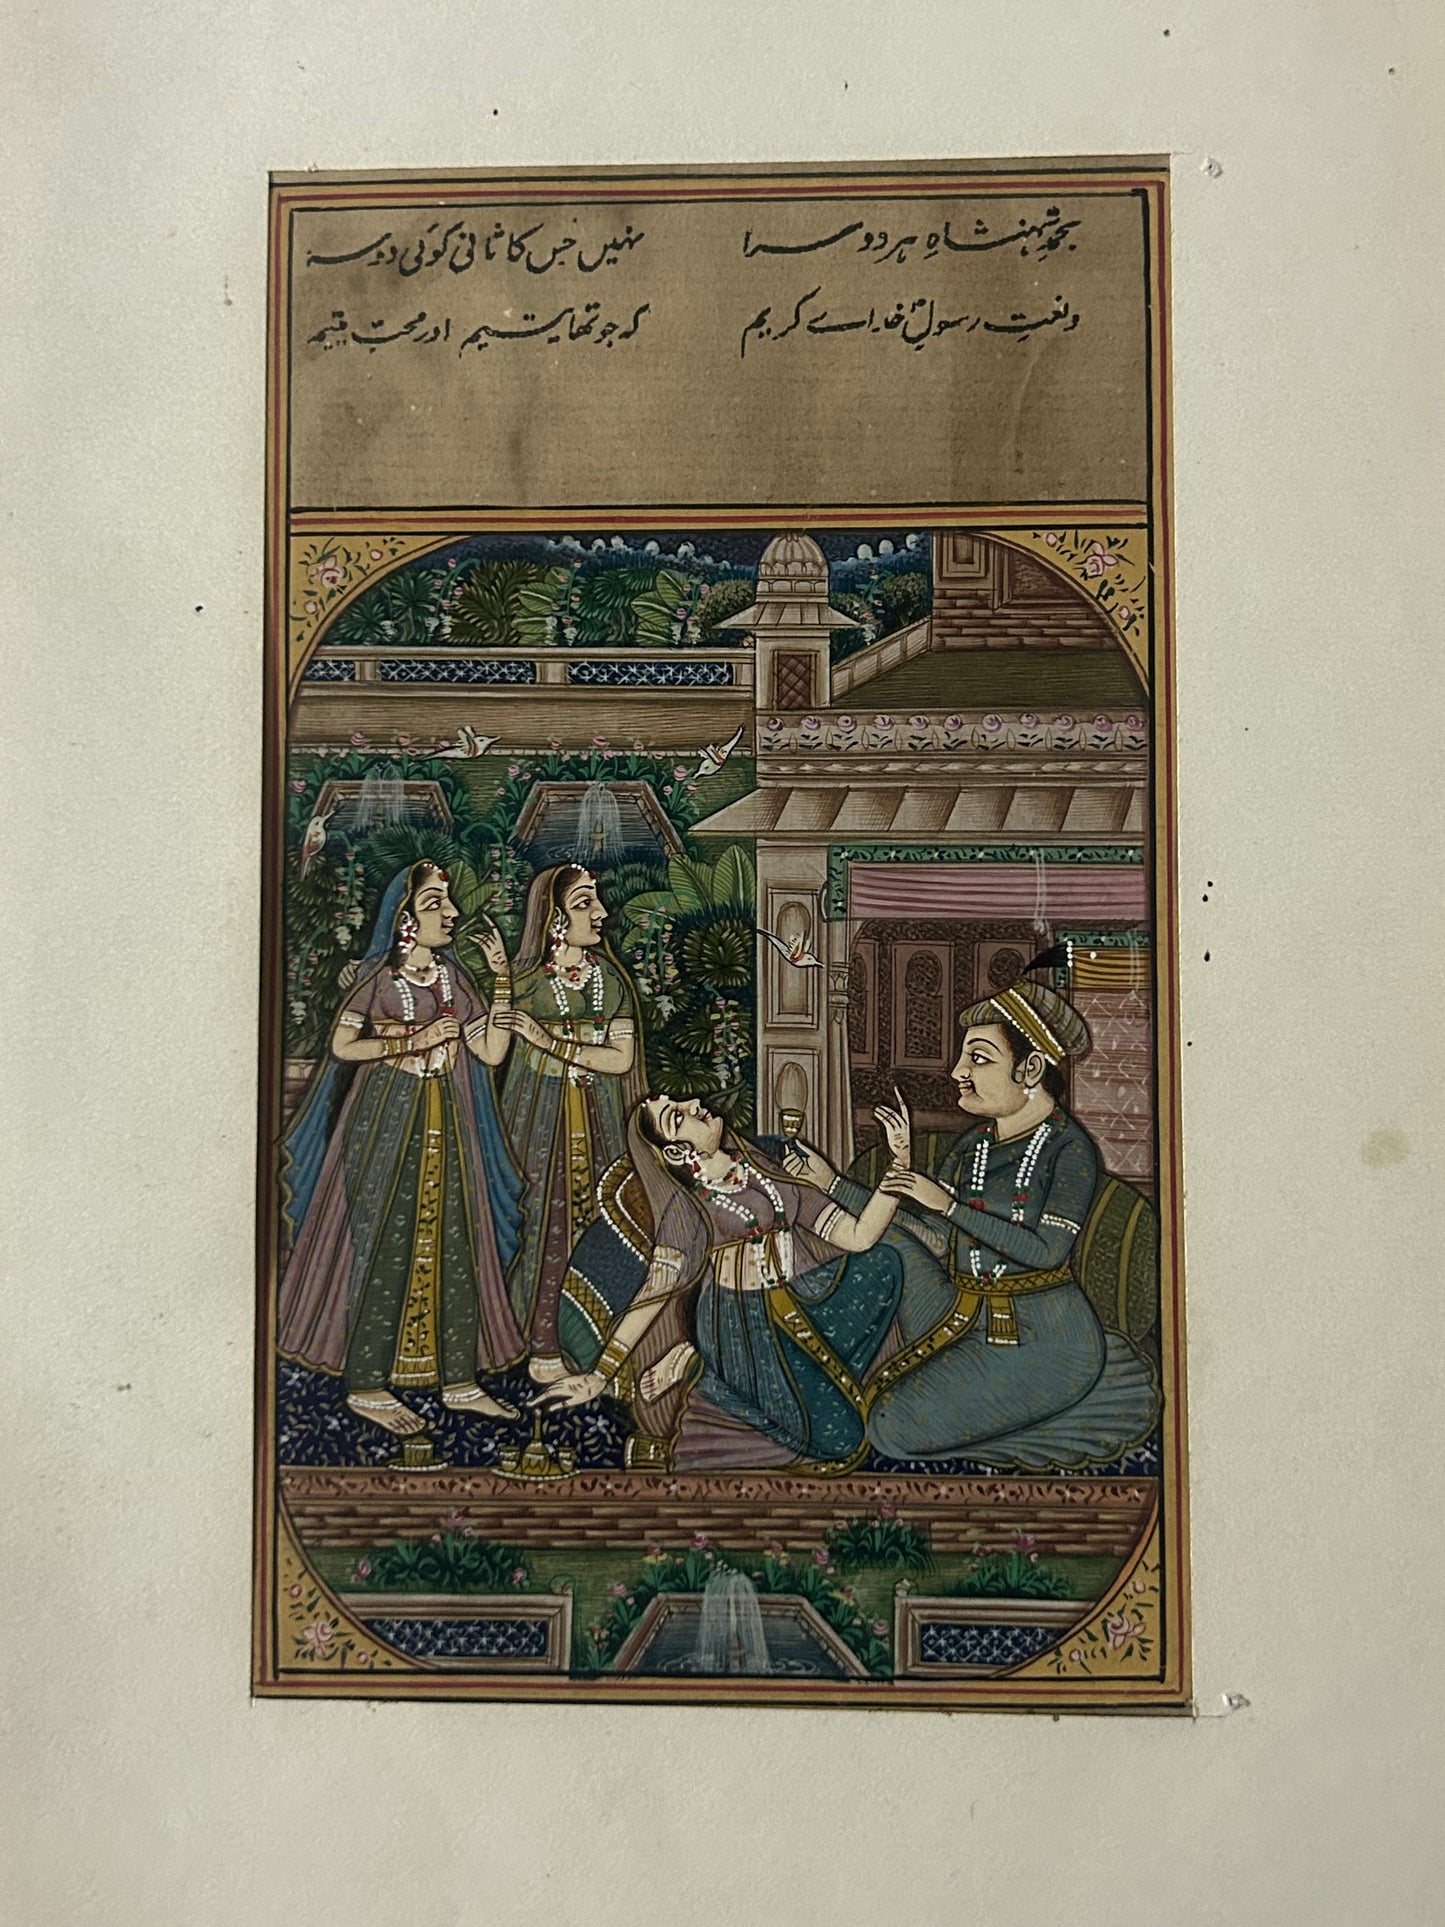 بحمدِ شہنشاہِ ہر دو سرا نہیں جس کا ثانی کوئی دوسرا
و نعتِ رسولِؐ خدائے کریم کہ جو تھا یتیم اور محبِّ یتیم